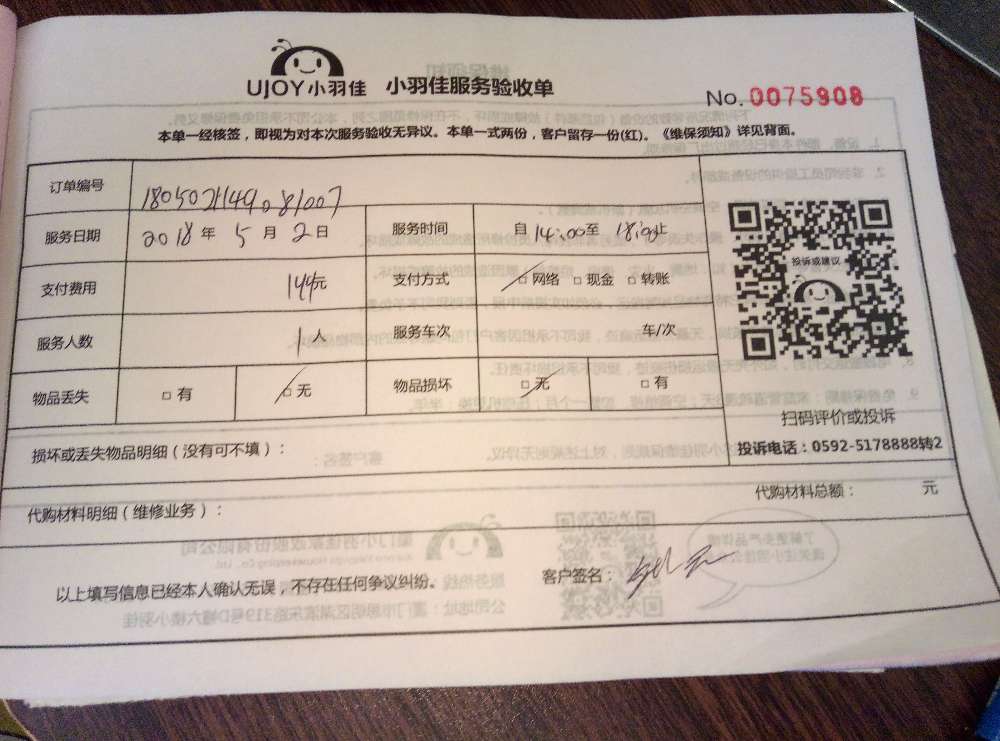 UJOY小羽佳 小羽佳服务验收单
No. 0075908
本单一经核签，即视为对本次服务验收无异议。本单一式两份，客户留存一份(红)。《维保须知》详见背面。
订单编号
服务日期 2018 年 5 月 2 日 服务时间 自 14:00 至 18:00 止
支付费用 144元 支付方式 □ 网络 □ 现金 □ 转账
投诉或建议
服务人数 1 人 服务车次 车/次
物品丢失 □ 有 □ 无 物品损坏 □ 无 □ 有
扫码评价或投诉
损坏或丢失物品明细（没有可不填）：
投诉电话：0592-5178888转2
代购材料明细（维修业务）： 代购材料总额： 元
以上填写信息已经本人确认无误，不存在任何争议纠纷。 客户签名：